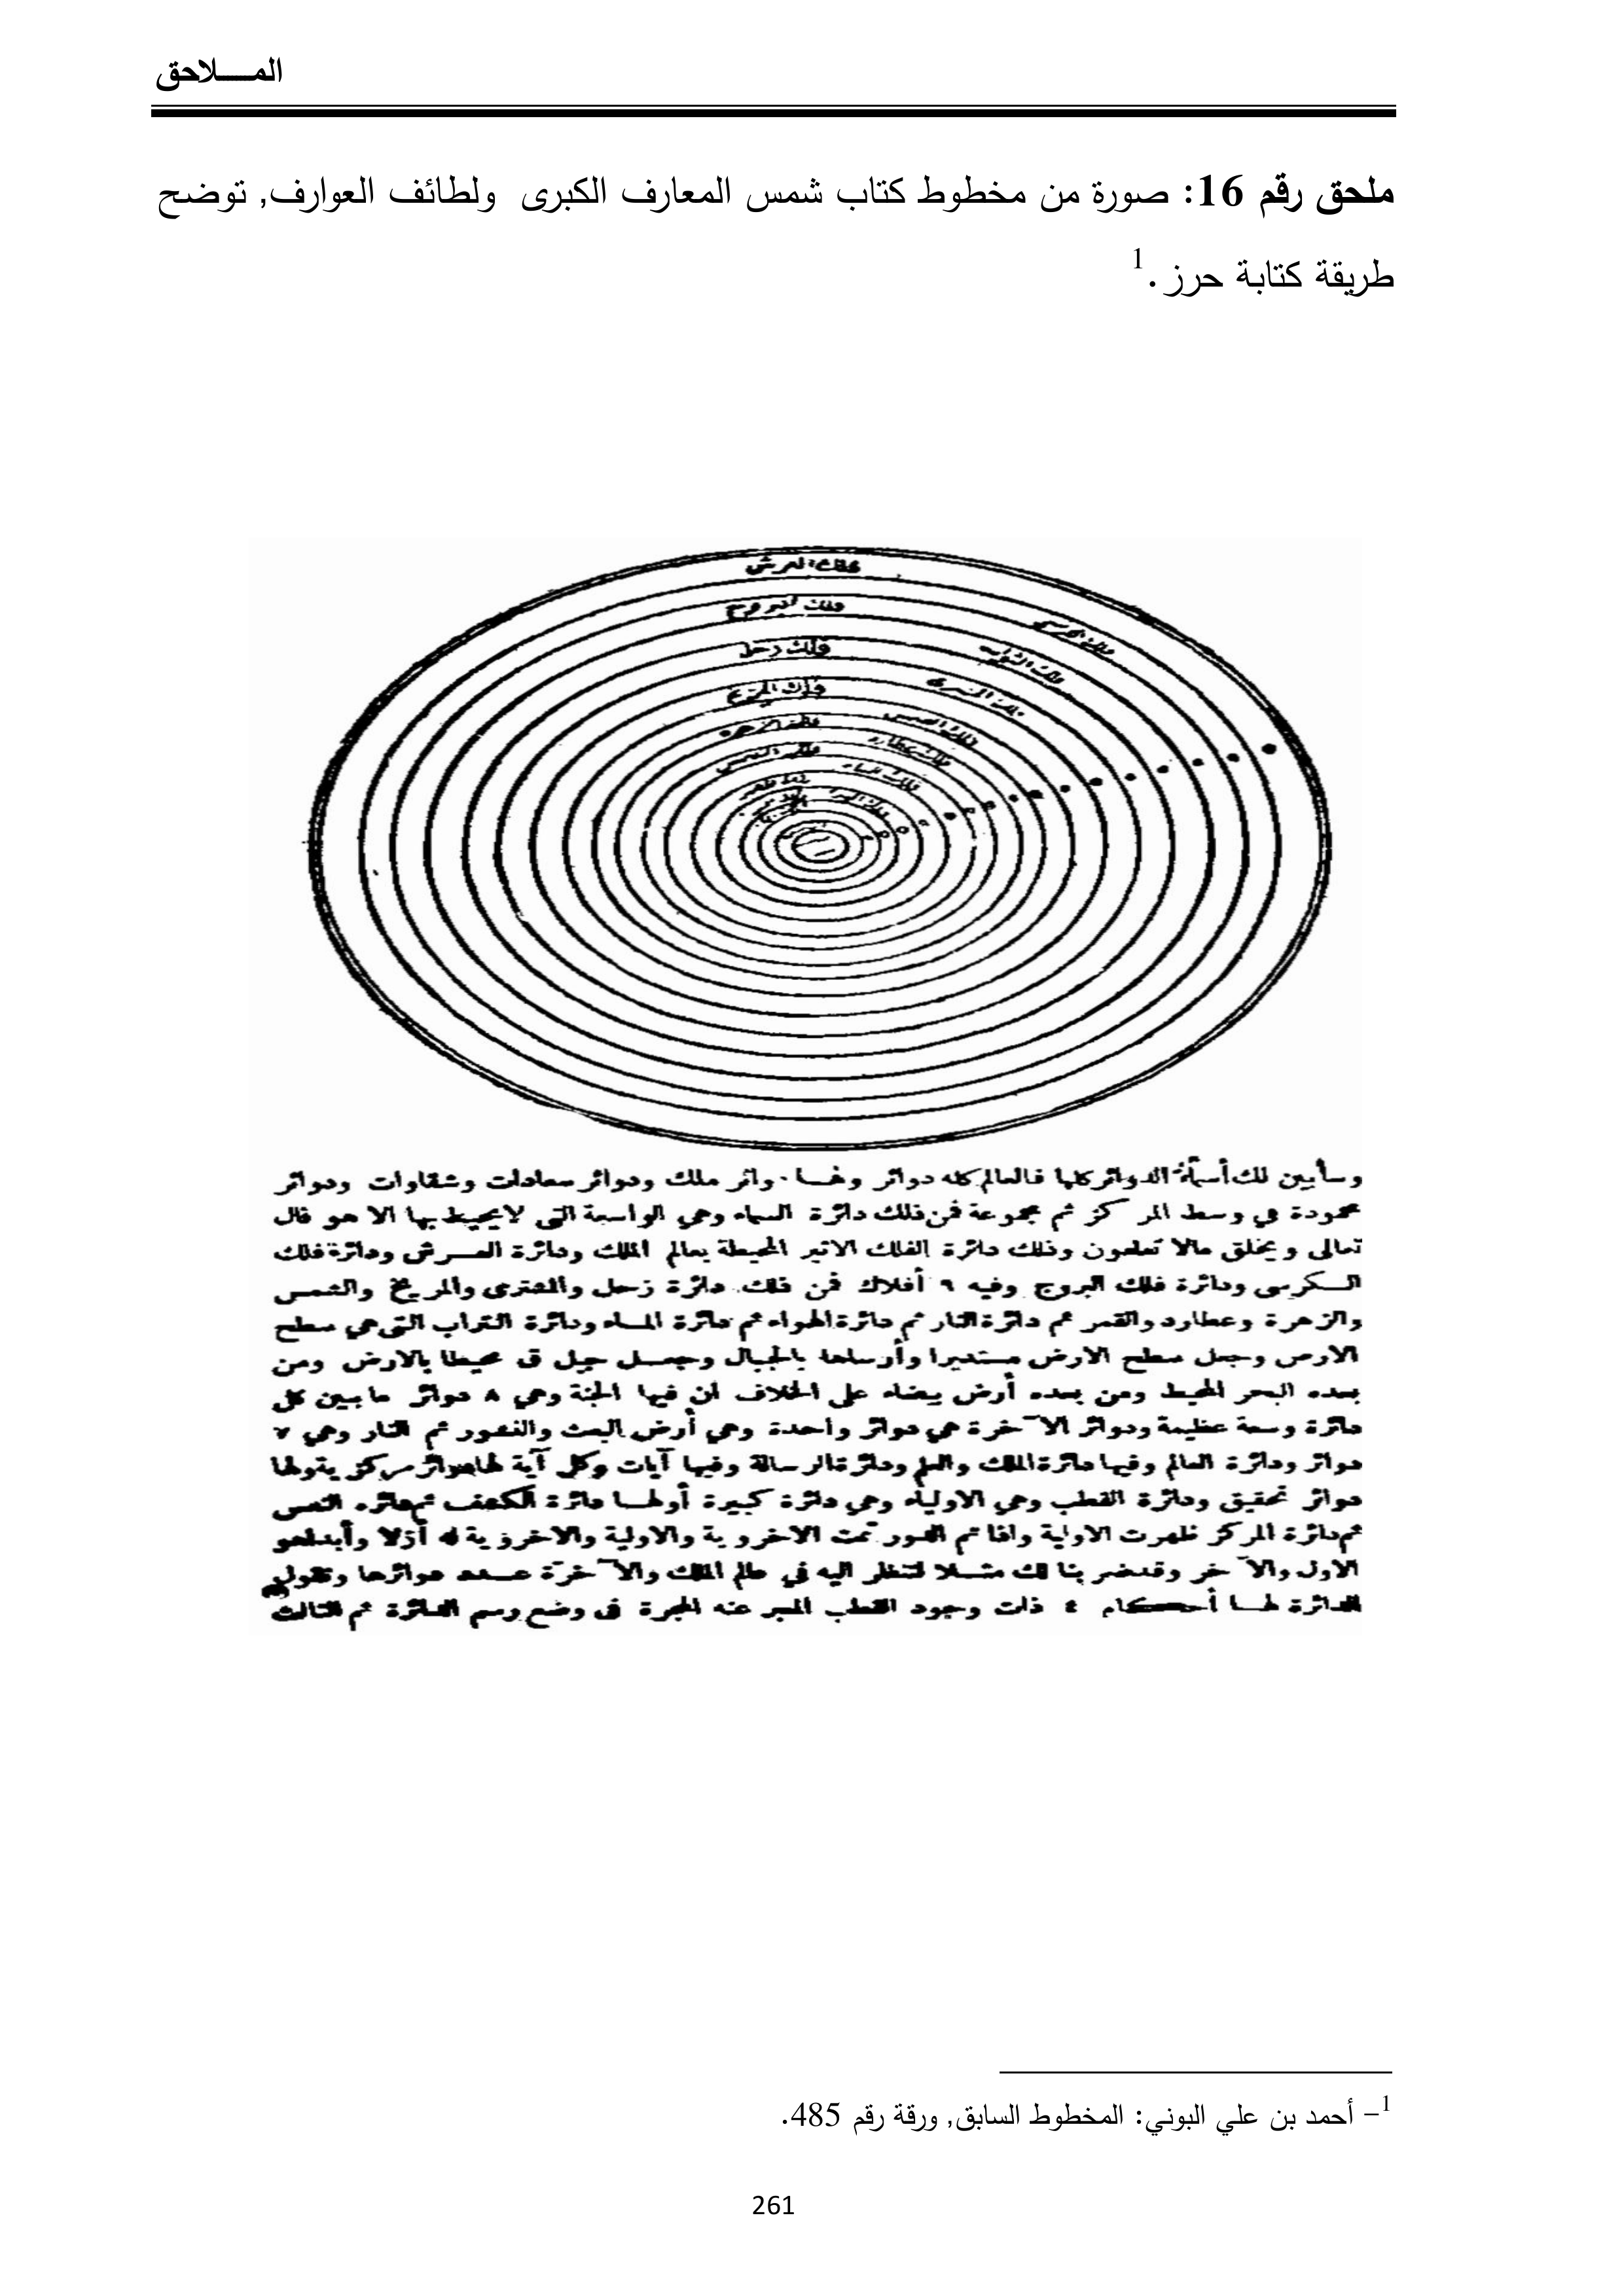 المـــــلاحق
ملحق رقم 16: صورة من مخطوط كتاب شمس المعارف الكبرى ولطائف العوارف, توضح
طريقة كتابة حرز.1
فلك العرش
فلك البروج
فلك زحل
فلك المريخ
فلك الزهرة
وسأبين لك أسماء الدوائر كلها فالعالم كله دوائر ولهـا دوائر ملك ودوائر سعادات وشقاوات ودوائر
محمودة في وسط المركز ثم مجموعة فمن ذلك دائرة السماء وهي الواسعة التى لايحيط بها الا هو قال
تعالى ويخلق مالا تعلمون وذلك دائرة الفلك الاثير المحيطة بعالم الملك ودائرة العـرش ودائرة فلك
الـكرسى ودائرة فلك البروج وفيه ٩ أفلاك فمن ذلك دائرة زحل والمشترى والمريخ والشمس
والزهرة وعطارد والقمر ثم دائرة النار ثم دائرة الهواء ثم دائرة المـاء ودائرة التراب التى هي سطح
الارض وجعل سطح الارض مستديرا وأرساها بالجبال وجعـل جبل ق محيطا بالارض ومن
بعده البحر المحيط ومن بعده أرض بيضاء على الخلاف ان فيها الجنة وهي ٨ دوائر مابين كل
دائرة وسعة عظيمة ودوائر الآخرة هي دوائر واحدة وهي أرض البعث والنشور ثم النار وهي ٧
دوائر ودائرة العالم وفيها دائرة الملك والعلم ودائرة الرسالة وفيها آيات وكل آية لها دوائر مركز يقولها
دوائر تحقيق ودائرة القطب وهي الاولياء وهي دائرة كبيرة أولهـا دائرة الكهف ثم دائرة الشمس
ثم دائرة المركز ظهرت الاولية واذا تم الصور تمت الاخروية والاولية والاخروية له أزلا وأبدا هو
الاول والآخر وقد ضربنا لك مثـلا لتنظر اليه في عالم الملك والآخرة عـدد دوائرها وتقول
الدائرة لهـا أحـكام ٤ ذات وجود القطب المعبر عنه المجرة فى وضع رسم الدائرة ثم الثالث
1- أحمد بن علي البوني: المخطوط السابق, ورقة رقم 485.
261